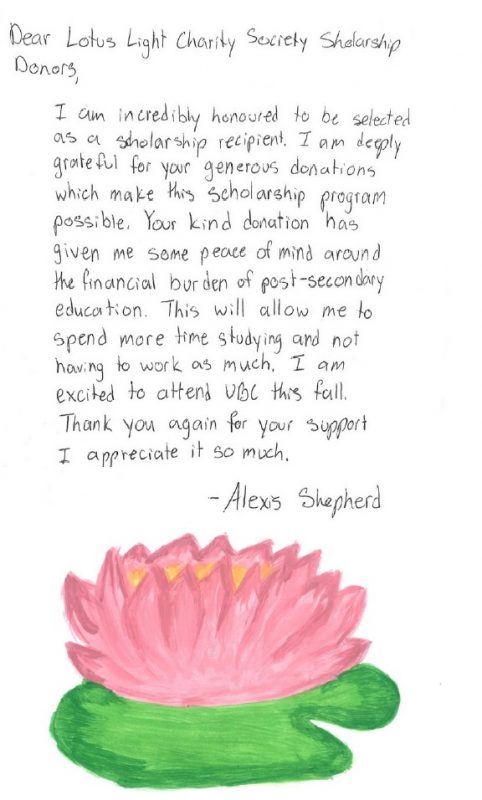 Dear Lotus Light Charity Society Sholarship
Donors,
I am incredibly honoured to be selected
as a scholarship recipient. I am deeply
grateful for your generous donations
which make this scholarship program
possible. Your kind donation has
given me some peace of mind around
the financial burden of post-secondary
education. This will allow me to
spend more time studying and not
having to work as much. I am
excited to attend UBC this fall.
Thank you again for your support
I appreciate it so much.
- Alexis Shepherd